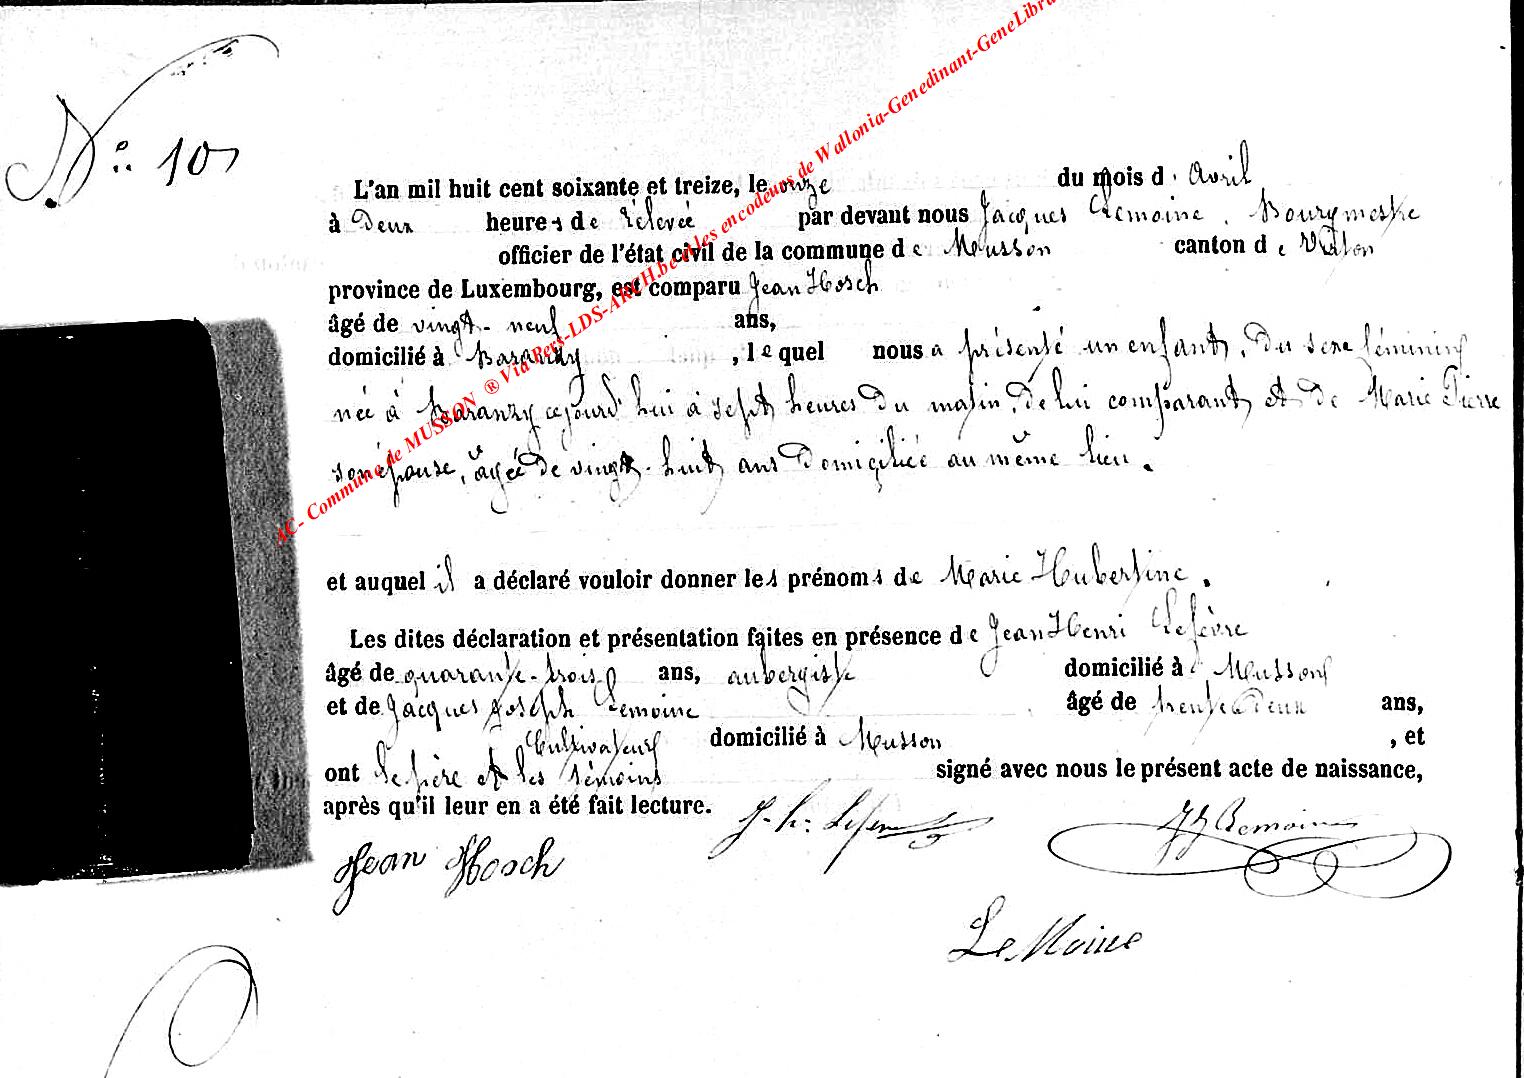 N° 10
AC- Commune de MUSSON ® Via Pers-LDS-ARCH.be et les encodeurs de Wallonia-Genedinant-GeneLibra
L'an mil huit cent soixante et treize, le onze du mois d'Avril
à Deux heures de rélevée par devant nous Jacques Lemoine, Bourgmestre
officier de l'état civil de la commune de Musson canton de Virton
province de Luxembourg, est comparu Jean Hosch
âgé de vingt-neuf ans,
domicilié à Baranzy, lequel nous a présenté un enfant, du sexe féminin
née à Baranzy cejourd'hui à sept heures du matin, de lui comparant et de Marie Pierre
son épouse, âgée de vingt-huit ans domiciliée au même lieu.
et auquel il a déclaré vouloir donner les prénoms de Marie Hubertine.
Les dites déclaration et présentation faites en présence de Jean Henri Lefèvre
âgé de quarante-trois ans, aubergiste domicilié à Musson
et de Jacques Joseph Lemoine âgé de trente deux ans,
Cultivateur domicilié à Musson, et
ont le père et les témoins signé avec nous le présent acte de naissance,
après qu'il leur en a été fait lecture.
J. h. Lefev JJ Lemoine
Jean Hosch
Le Moine